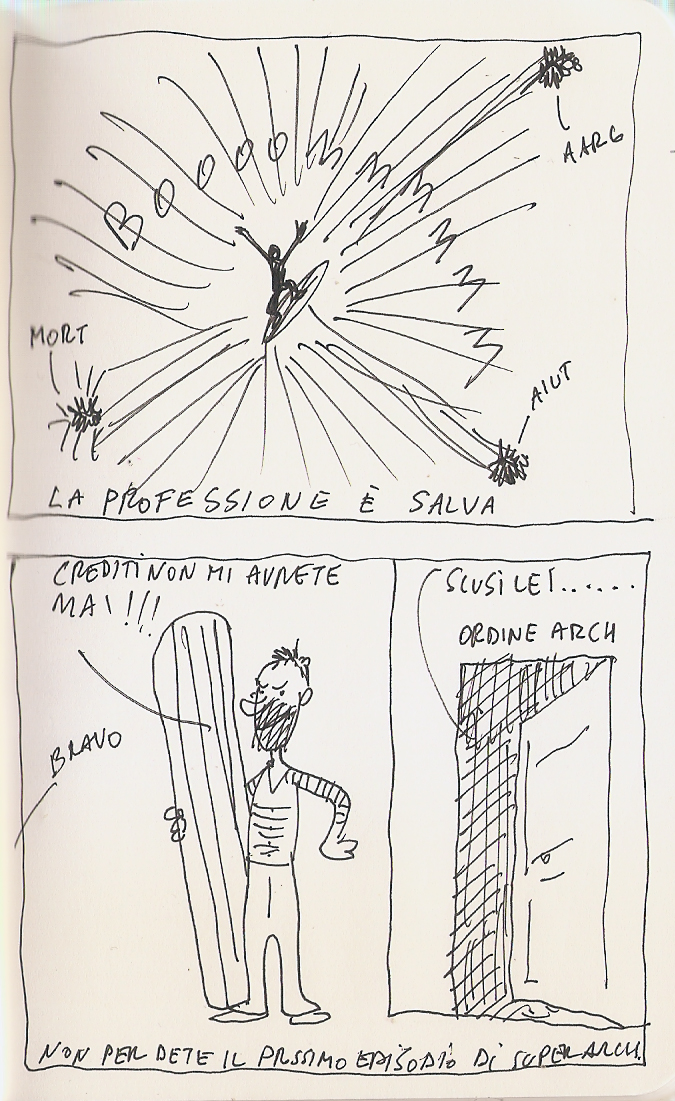 BOOOOMMMMMMM
AARG
MORT
AIUT
LA PROFESSIONE È SALVA
CREDITI NON MI AVRETE
MAI!!!
BRAVO
SCUSI LEI......
ORDINE ARCH
NON PERDETE IL PRSSIMO EPISODIO DI SUPERARCH.